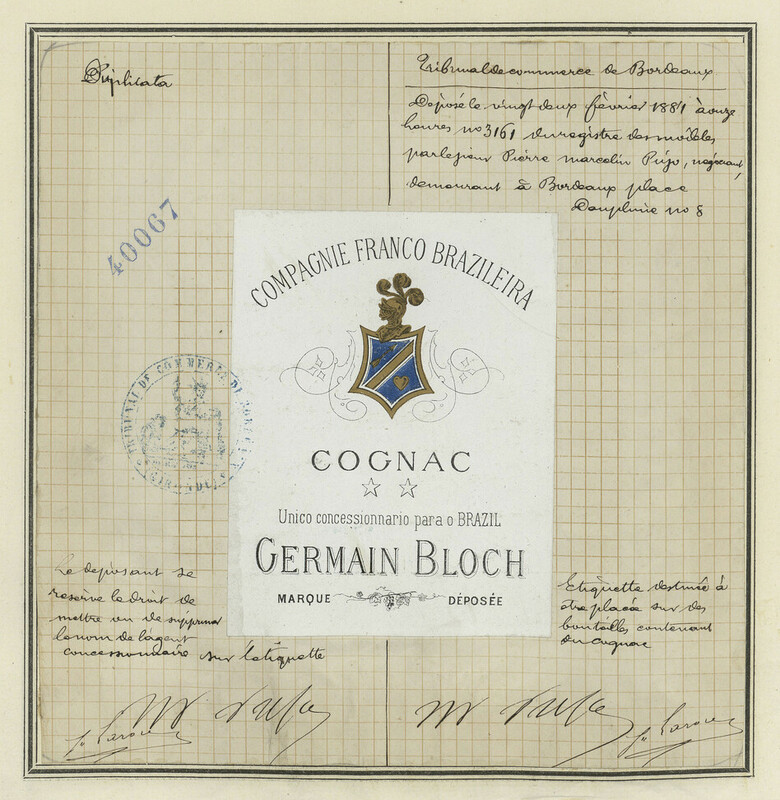 Duplicata
Tribunal de commerce de Bordeaux
Déposé le vingt deux février 1881 à onze
heures no 3161 du registre des modèles
par le sieur Pierre marcelin Pujo, négociant,
demeurant à Bordeaux place
Dauphine no 8
40067
COMPAGNIE FRANCO BRAZILEIRA
TRIBUNAL DE COMMERCE DE
COGNAC
Unico concessionnario para o BRAZIL
GERMAIN BLOCH
MARQUE DÉPOSÉE
Le déposant se
reserve le droit de
mettre ou de supprimer
le nom de l'agent
concessionnaire sur l'étiquette
Etiquette destinée à
être placée sur des
bouteilles contenant
du cognac